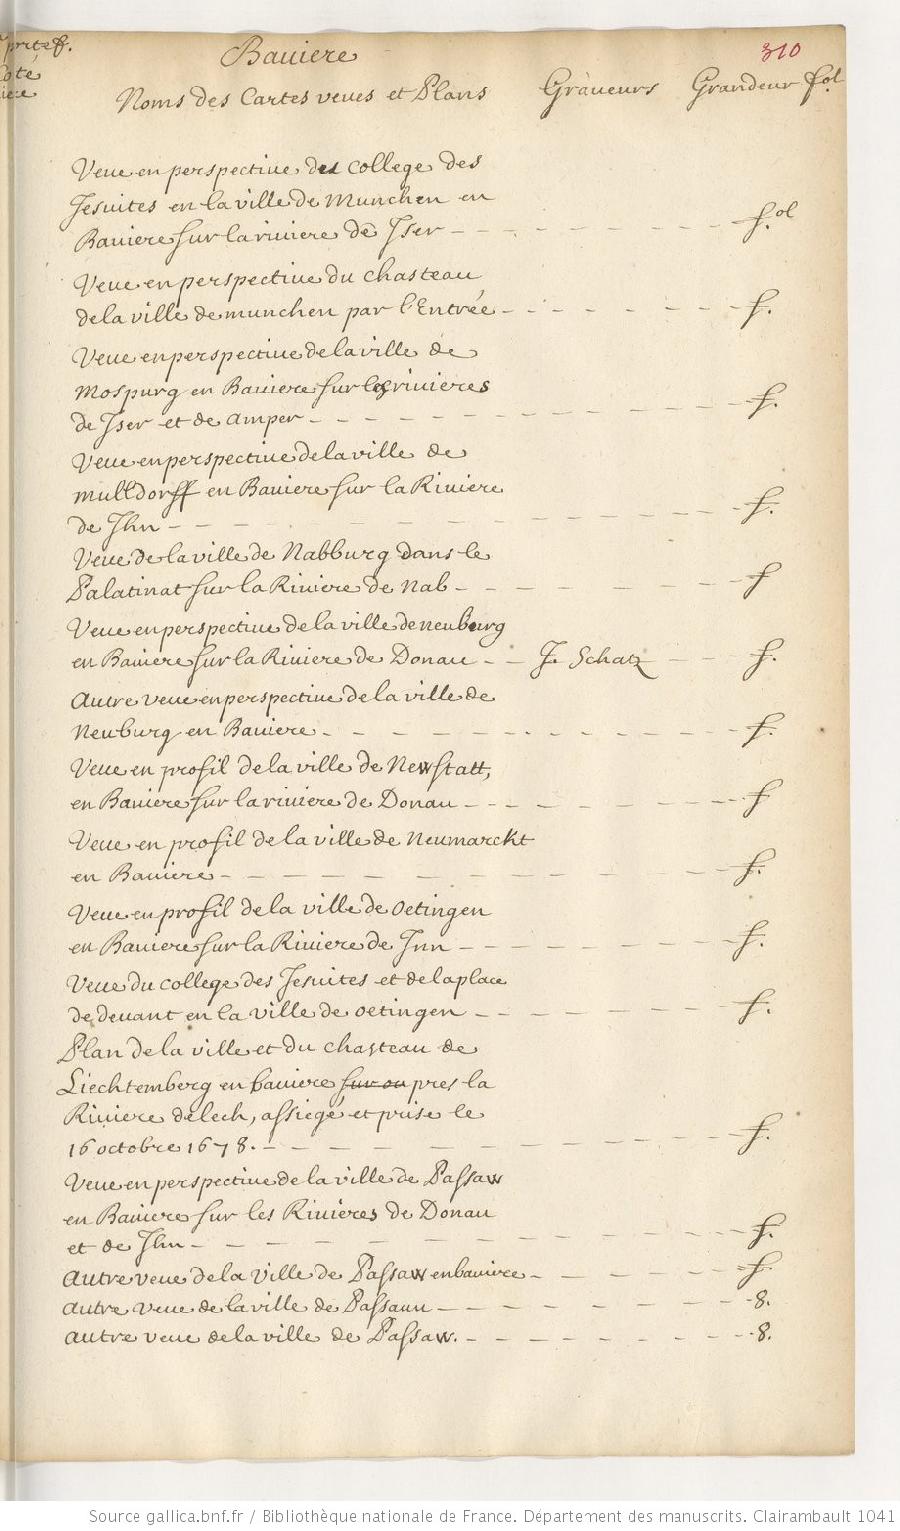 prtef.
Baviere
310
coté
Noms des Cartes veues et Plans Graveurs Grandeur fol
Veue en perspective des college des
Jesuites en la ville de Munchen en
Baviere sur la riviere de Iser - f.ol
Veue en perspective du chasteau
de la ville de munchen par l'Entrée - f.
Veue en perspective de la ville de
Mospurg en Baviere sur les rivieres
de Iser et de Amper - f.
Veue en perspective de la ville de
mulldorff en Baviere sur la Riviere
de Ihn - f.
Veue de la ville de Nabburg dans le
Palatinat sur la Riviere de Nab - f
Veue en perspective de la ville de neuburg
en Baviere sur la Riviere de Donau - J. Schatz - f.
Autre veue en perspective de la ville de
Neuburg en Baviere - f.
Veue en profil de la ville de Newstatt,
en Baviere sur la riviere de Donau - f
Veue en profil de la ville de Neumarckt
en Baviere - f.
Veue en profil de la ville de Oetingen
en Baviere sur la Riviere de Inn - f.
Veue du college des Jesuites et de la place
de devant en la ville de Oetingen - f.
Plan de la ville et du chasteau de
Liechtemberg en baviere sur ou pres la
Riviere de lech, assiegé et prise le
16 octobre 1678. - f.
Veue en perspective de la ville de Passaw
en Baviere sur les Rivieres de Donau
et de Ihn - f.
Autre veue de la Ville de Passaw en baviere - f.
Autre veue de la ville de Passaun - 8.
Autre veue de la ville de Passaw. - 8.
Source gallica.bnf.fr / Bibliothèque nationale de France. Département des manuscrits. Clairambault 1041